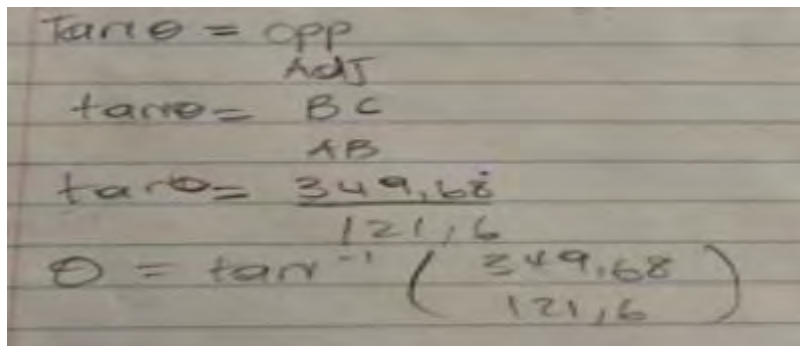 Tanθ = opp
AdJ
tanθ = BC
AB
tanθ = 349,68
121,6
θ = tan⁻¹ ( 349,68
121,6 )